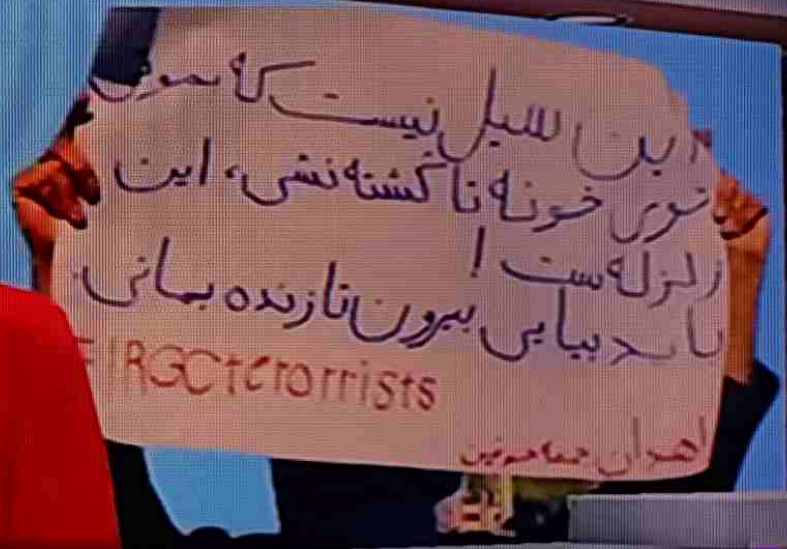 این سیل نیست که بمونی
توی خونه تا کشته نشی، این
زلزله ست !
باید بیایی بیرون تا زنده بمانی.
#IRGCterorrists